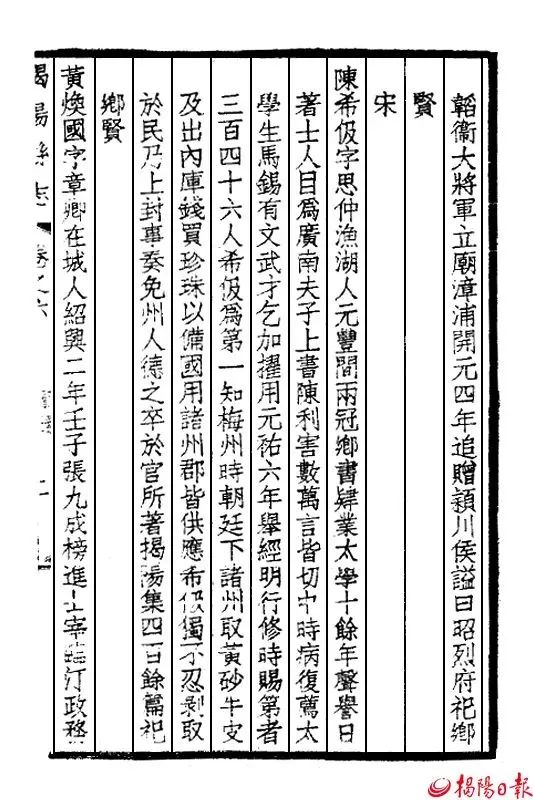 韜衞大將軍立廟漳浦開元四年追贈潁川侯謚曰昭烈府祀鄉
賢
宋
陳希伋字思仲漁湖人元豐間兩冠鄉書肄業太學十餘年聲譽日
著士人目爲廣南夫子上書陳利害數萬言皆切中時病復薦太
學生馬錫有文武才乞加擢用元祐六年舉經明行修時賜第者
三百四十六人希伋爲第一知梅州時朝廷下諸州取黃砂牛皮
及出內庫錢買珍珠以備國用諸州郡皆供應希伋獨不忍剥取
於民乃上封事奏免州人德之卒於官所著揭陽集四百餘篇祀
鄉賢
黃煥國字章卿在城人紹興二年壬子張九成榜進士宰臨汀政務
揭陽縣志 卷之六
揭陽日報